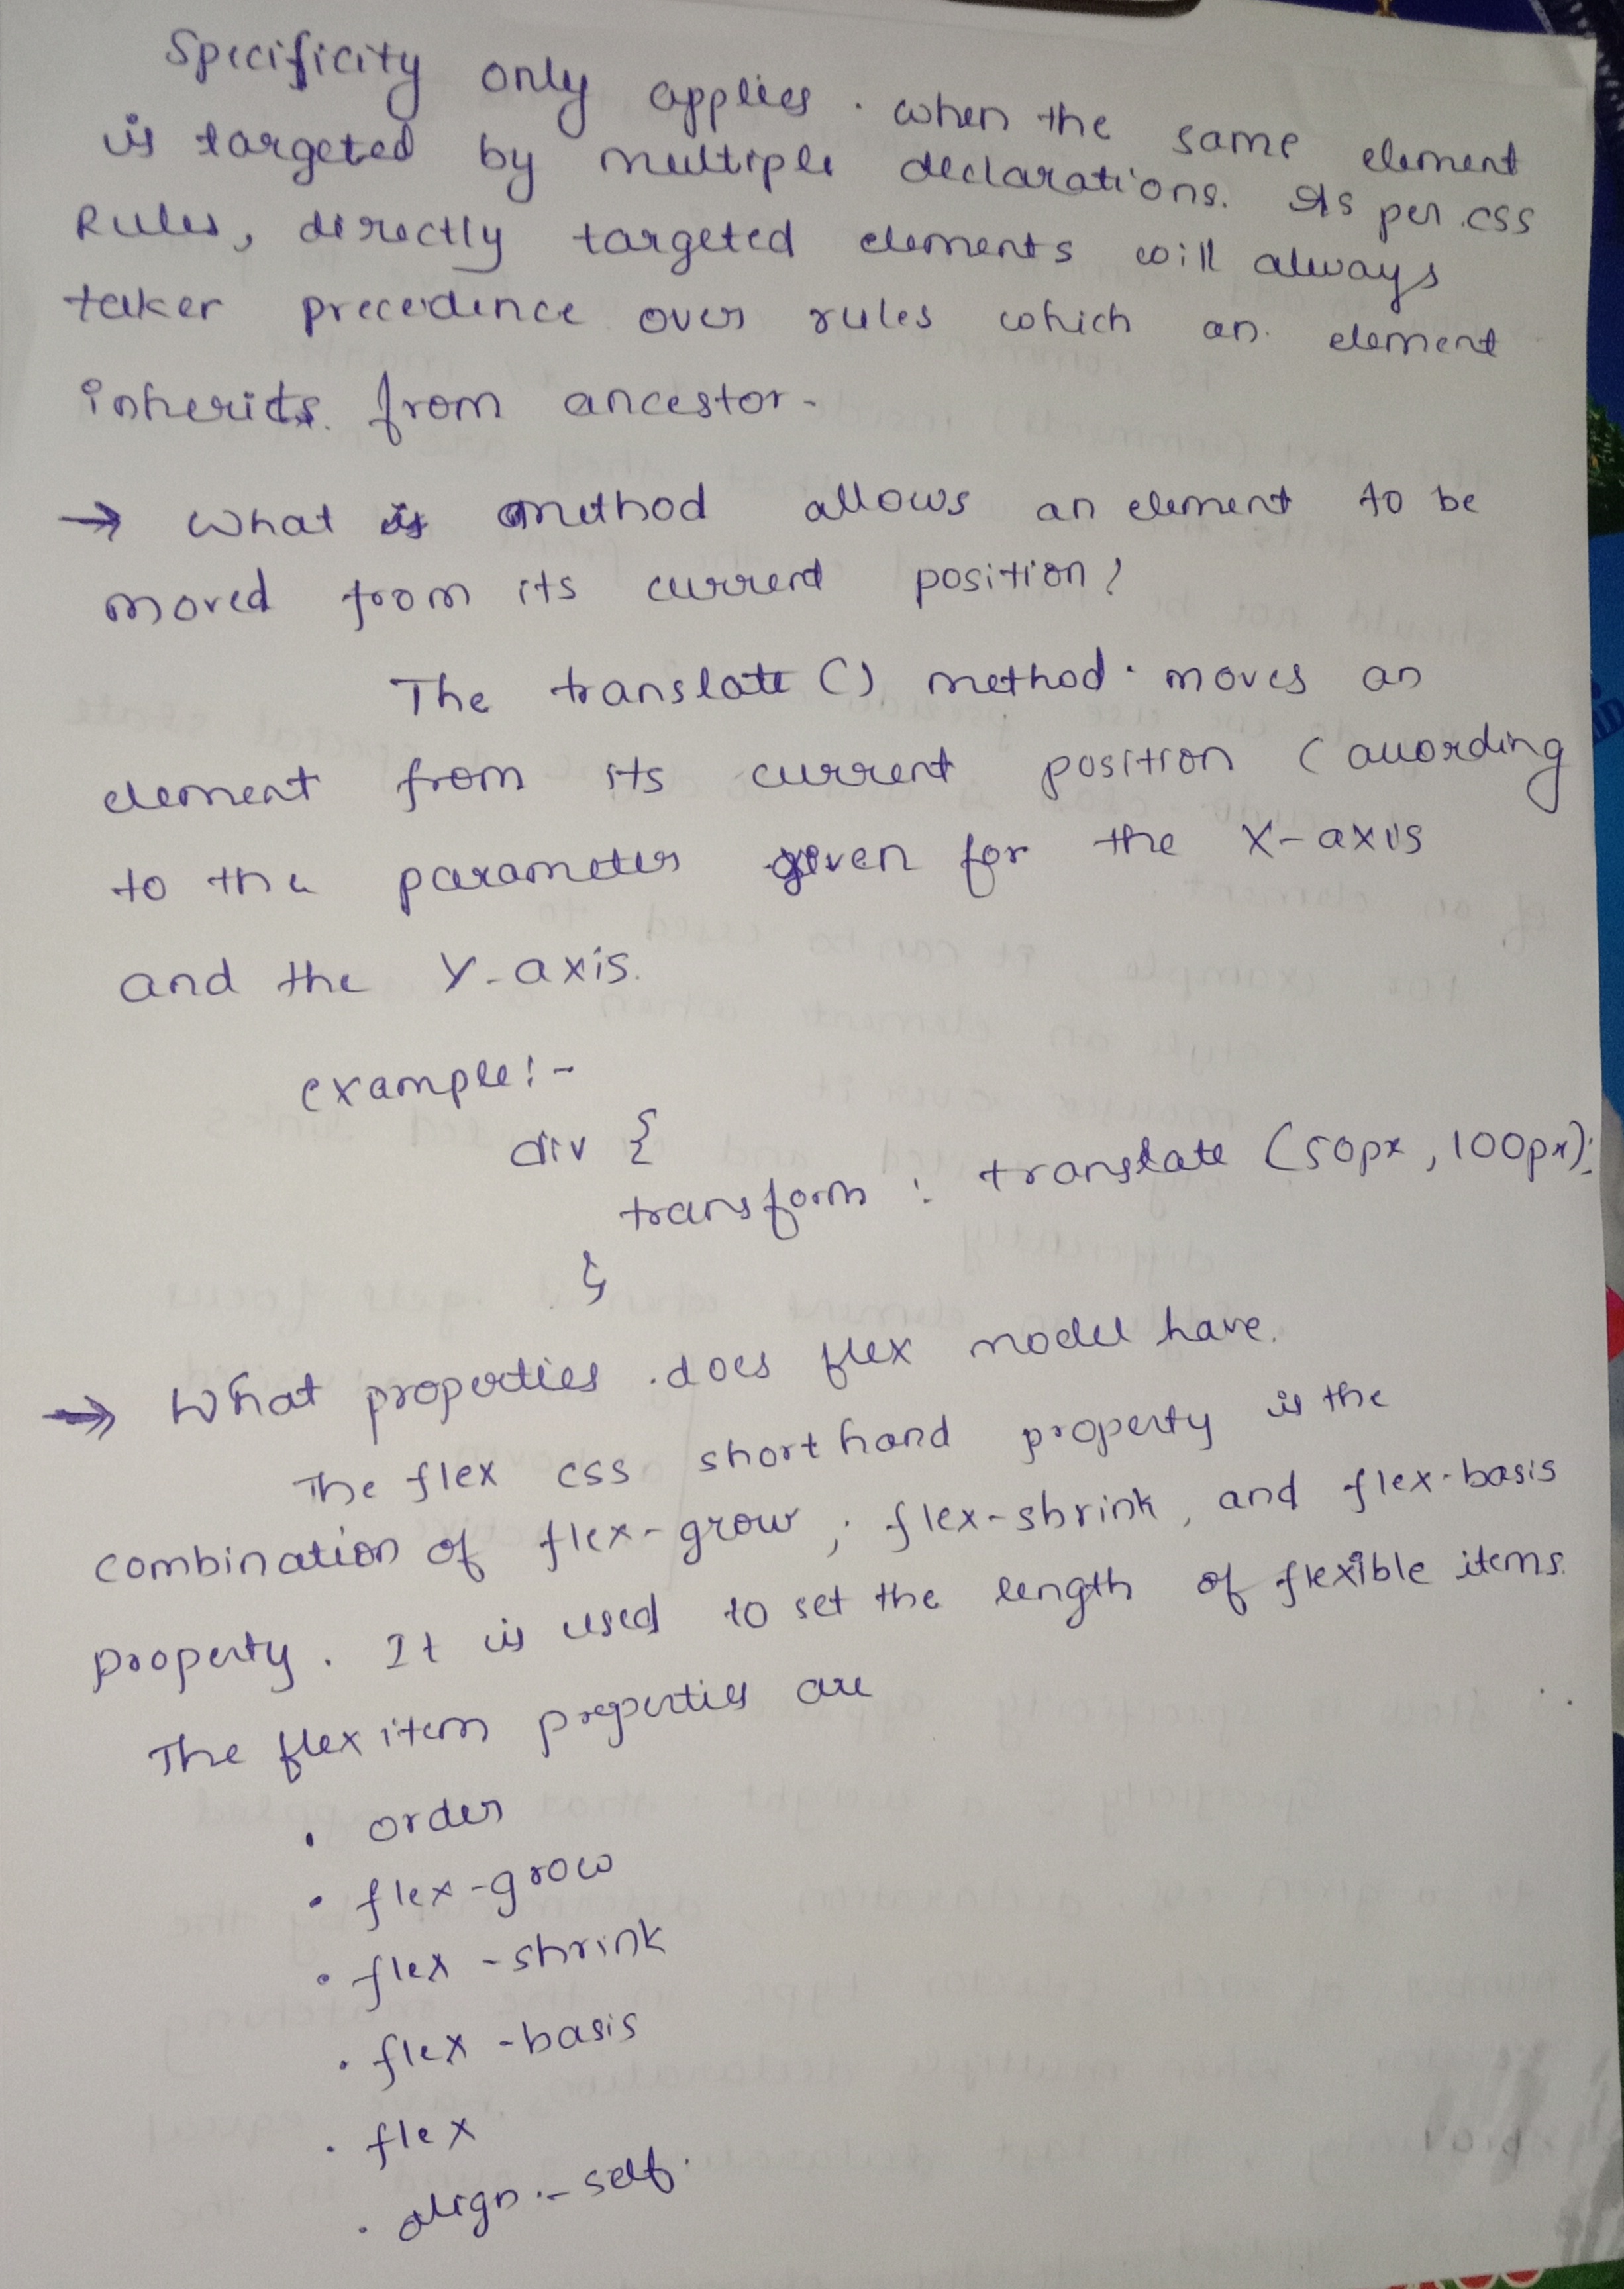 Specificity only applies when the same element
is targeted by multiple declarations. As per css
Rules, directly targeted elements will always
taker precedence over rules which an element
inherits from ancestor.
→ What is method allows an element to be
moved from its current position?
The translate () method moves an
element from its current position (according
to the parameters given for the X-axis
and the Y-axis.
example:-
div {
transform : translate (50px, 100px);
}
→ What properties does flex model have.
The flex css shorthand property is the
combination of flex-grow, flex-shrink, and flex-basis
property. It is used to set the length of flexible items.
The flex item properties are
• order
• flex-grow
• flex-shrink
• flex-basis
• flex
• align-self.